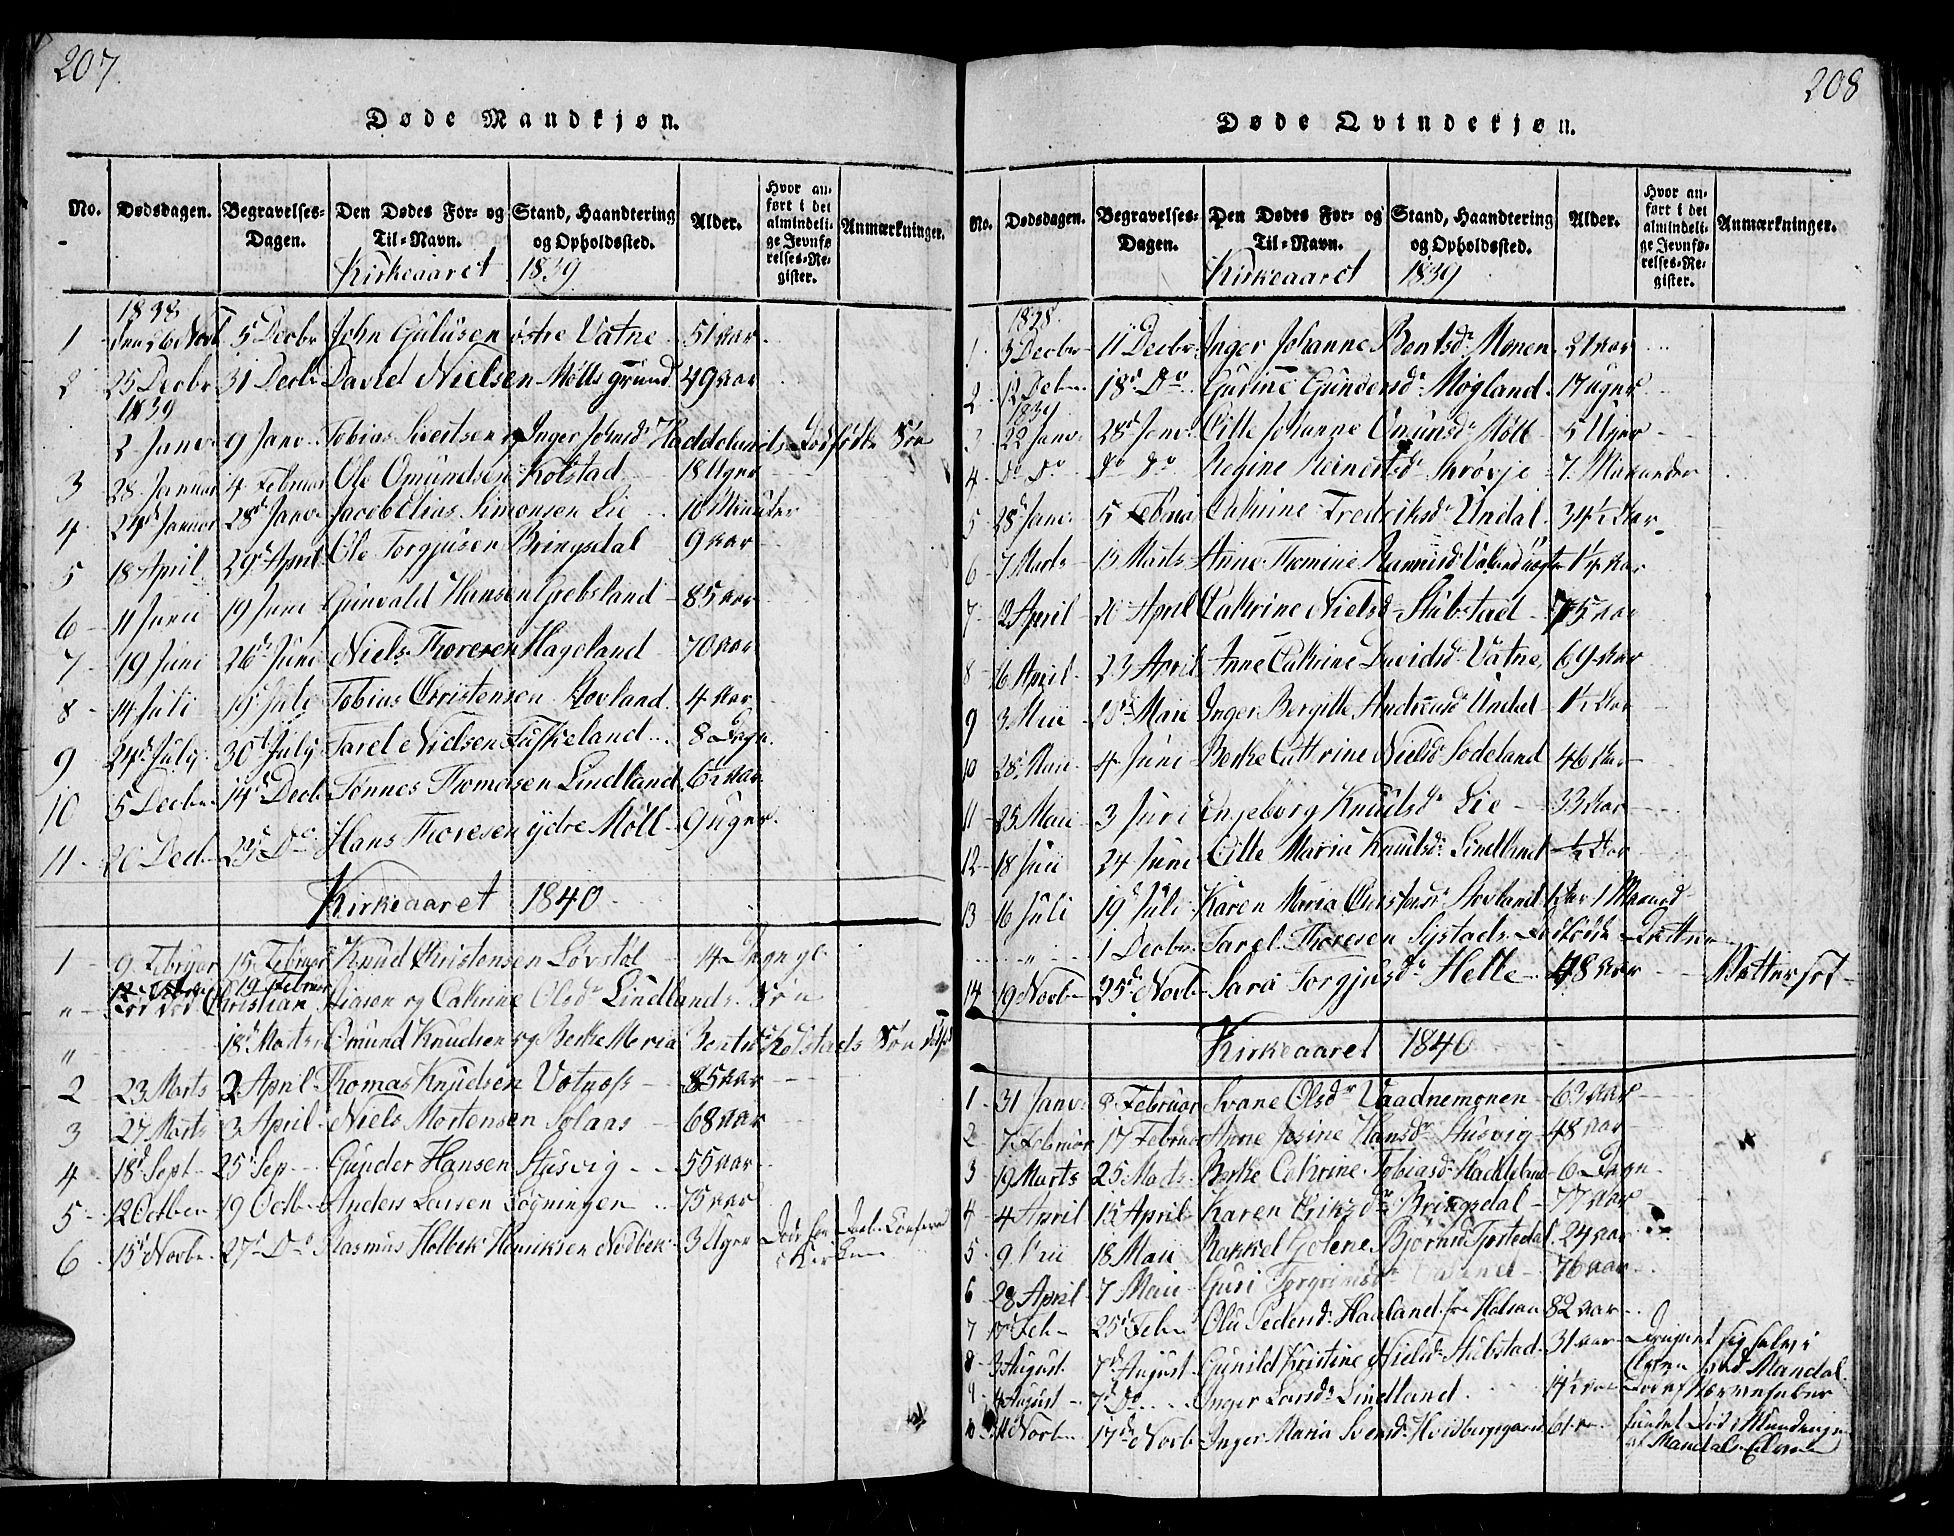 207.
Døde Mandkjøn.
No. Dødsdagen. Begravelses-Dagen. Den Dødes For- og Til-Navn. Stand, Haandtering og Opholdssted. Alder. Hvor anført i det almindelige Jevnførelses-Register. Anmærkninger.
Kirkeaaret 1839
1838
1 den 26 Novb 5 Decbr John Gulusen østre Vatne 51 Aar
2 25 Decbr 31 Decbr David Nielsen Mølls grund 49 Aar
1839
2 Janv 9 Janv Tobias Sivertsen og Inger Johnsdr Haddelands Dødfødte Søn
3 28 Januar 4 Februar Ole Omundsen Kolstad 18 Uger
4 24d Januar 28d Janv Jacob Elias Simonsen Lie 10 Minuter
5 18 April 29d April Ole Torgjusen Bringsdal 9 Aar
6 11 Juni 19 Juni Gunvald Hansen Goebsland 85 Aar
7 19 Juni 26d Juni Niels Thoresen Hageland 70 Aar
8 14 Juli 19 July Tobias Christensen Hovland 4 Aar
9 24d July 30d July Tarel Nielsen Fuskeland 8 Dage
10 5 Decbr 14d Decb Tønnes Thomasen Lindland 6½ Aar
11 20 Decb 23d Do Hans Thoresen ydre Möll 9 uger
Kirkeaaret 1840
1 9 Februar 15 Februar Knud Christensen Løvstøl 14 Dage gl.
" 19 Februar Død Christian Aiason og Cathrine Olsdr Lindlands Søn
" 18d Marts Omund Knudsen og Berthe Maria Bentsdr Kolstads Søn
2 23 Marts 2 April Thomas Knudsen Votnøss 85 Aar
3 27 Marts 3 April Niels Mortensen Solaas 68 Aar
4 18d Sept 25 Sep Gunder Hansen Stusvig 55 Aar
5 12 Octber 19 Octb Anders Larsen Løgningen 75 Aar
6 15d Novbr 27d Do Rasmus Holbek Henriksen Nodbek 3 Uger
208
Døde Qvindekjøn.
No. Dødsdagen. Begravelses-Dagen. Den Dødes For- og Til-Navn. Stand, Haandtering og Opholdssted. Alder. Hvor anført i det almindelige Jevnførelses-Register. Anmærkninger.
Kirkeaaret 1839
1838
1 3 Decbr 11 Decbr Inger Johanne Bentsdr Monen 21 Aar
2 12 Debr 18d Do Gurine Gundersdr Møgland 17 uger
1839
3 22 Janv 28d Janv Cille Johanne Omunsdr Möll 5 Uger
4 Do Do Do Do Regine Reinertsdr Skrøvje 7 Maaneder
5 28 Janv 5 Februar Cathrine Fredriksdr Undal 34½ Aar
6 7 Marts 13 Marts Anne Thomine 1¼ Aar
7 12 April 20 April Cathrine Nielsdr Stubstad 75 Aar
8 16 April 23 April Anne Cathrine Davidsdr Vatne 69 Aar
9 3 Mai 10d Mai Inger Bergitte Andreasdr Undal 1½ Aar
10 28 Mai 4 Juni Berthe Cathrine Nielsdr Sodeland 46 Aar
11 25 Maii 3 Juni Ingeborg Knudsdr Lie 33 Aar
12 18 Juni 24 Juni Cille Maria Knudsdr Lindland ½ Aar
13 16 Juli 19d Juli Karen Maria Christensdr Hovland 1 Aar 1 Maaned
" 1 Decbr Tarel Thoresen Systads Dødfødte Datter
14 19 Novbr 25d Novbr Sara Torgjusdr Helle 48 Aar Vattersot
Kirkeaaret 1840
1 31 Janv 8 Februar Svane Olsdr Vaadnemonen 63 Aar
2 7 Februar 17 Februar Anne Josine Hansdr Stusvig 48 Aar
3 19 Marts 25 Marts Berthe Cathrine Tobiasdr Haddeland 6 Dage
4 4 April 15 April Karen Eriksdr Bringsdal 77 Aar
5 9 Mai 18 Maii Rakkel Jolene Bjørnsdr Tjostedal 24 Aar
6 28 April 7 Maii Guri Torgrimsdr 76 Aar
7 17 Feb 25d Feb Olu Pedersdr Haaland fra Halsaa 82 Aar
8 3 August 7d August Gunild Kristine Nielsdr Stubstad 31 Aar Druknet sig selv i Elven ved Mandal
9 4 August 7d Do Inger Larsdr Lindland 14½ Aar Død af Nervefeber
10 11 Novbr 17d Novb Inger Maria Svensdr Hvidbergsgaard 61 Aar fundet død i Mundingen af Mandals Elven